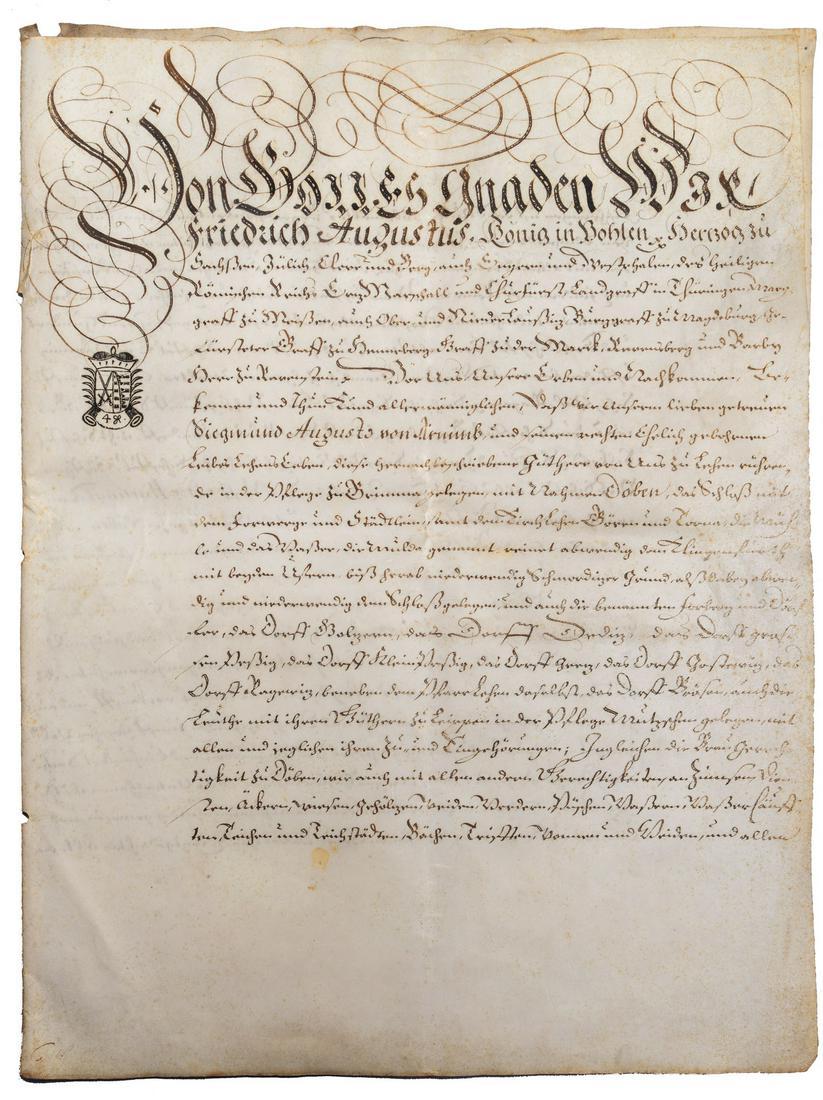 Von GOTTES Gnaden Wir
Friedrich Augustus, König in Pohlen, Hertzog zu
Sachßen, Jülich, Cleve und Berg, auch Engern und Westphalen, des Heiligen
Römischen Reichs Ertz Marschall und Churfürst, Landgraff in Thüringen, Marg-
graff zu Meißen, auch Ober- und Nieder Laußitz, Burggraff zu Magdeburg, Ge-
fürsteter Graff zu Henneberg, Graff zu der Marck, Ravensberg und Barby
Herr zu Ravenstein, Vor Uns, Unsere Erben und Nachkommen, Be-
kennen und thun Kund allermänniglichen, daß wir Unserm lieben getreuen
Siegmund Augusto von Arnimb, und seinen rechten Ehelich gebohrnen
Leibes Lehens Erben, diese hernachbeschriebene Güthere von Uns zu Lehen rühren-
de in der Pflege zu Grimma gelegen, mit Nahmen Döben, das Schloß mit
dem Forwerge und Städtlein, samt dem Kirch Lehen Gören und Torna, die Müh-
le und das Waßer, die Mulda genannt, reinet abwendig dem
mit beyden Ufern, biß herab niederwendig Schmorditzer Grund, alß oben abwen-
dig und niederwendig dem Schloß gelegen, und auch die benannten Forberg und Dörf-
fer, das Dorff Golzern, das Dorff Deditz, das Dorff groß-
sen Peßig, das Dorff Klein Peßig, das Dorff das Dorff Gostewitz, das
Dorff Ragewitz, beneben dem Pfarr Lehen daselbst, das Dorff Grösen, auch die
Leuthe mit ihren Güthern zu Leippen in der Pflege Mutzschen gelegen, mit
allen und jeglichen ihren Zu- und Eingehörungen; Ingleichen die Brau Gerech-
tigkeit zu Döben, wie auch mit allen andern Gerechtigkeiten, an Zünsen, Dien-
sten, Äckern, wiesen, Gehöltzen, Weiden, Werdern, Püschen, Waßern, Waßer Läuff-
ten, Teichen und Teichstädten, Bächen, Trifften, Wonnen und Weiden, und allen
48